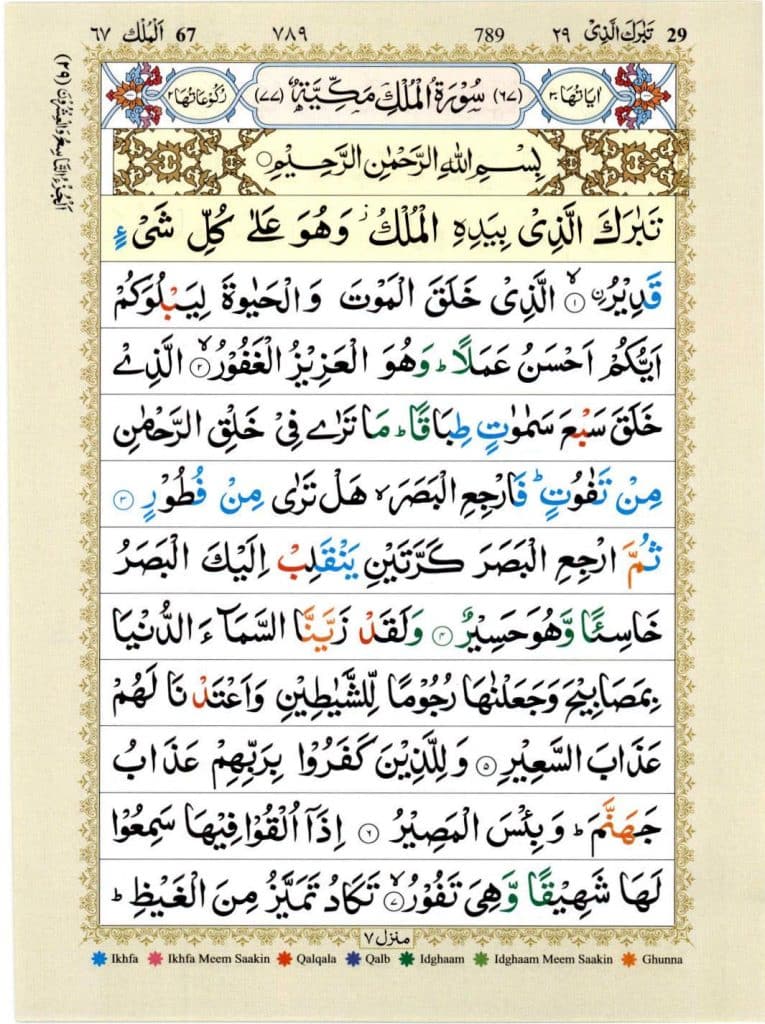 29 تَبٰرَكَ الَّذِىْ ٢٩ 789 ٧٨٩ 67 اَلْمُلْك ٦٧
اَلْجُزْءُ التَّاسِعُ وَالْعِشْرُوْنَ (٢٩)
اٰيَاتُهَا ٣٠ (٦٧) سُوْرَةُ الْمُلْكِ مَكِّيَّةٌ (٧٧) رُكُوْعَاتُهَا ٢
بِسْمِ اللّٰهِ الرَّحْمٰنِ الرَّحِيْمِ
تَبٰرَكَ الَّذِىْ بِيَدِهِ الْمُلْكُ ز وَهُوَ عَلٰى كُلِّ شَىْءٍ
قَدِيْرُ ۨ ۙ ١ الَّذِىْ خَلَقَ الْمَوْتَ وَالْحَيٰوةَ لِيَبْلُوَكُمْ
اَيُّكُمْ اَحْسَنُ عَمَلًا ؕ وَهُوَ الْعَزِيْزُ الْغَفُوْرُ ۙ ٢ الَّذِىْ
خَلَقَ سَبْعَ سَمٰوٰتٍ طِبَاقًا ؕ مَا تَرٰى فِىْ خَلْقِ الرَّحْمٰنِ
مِنْ تَفٰوُتٍ ؕ فَارْجِعِ الْبَصَرَ ۙ هَلْ تَرٰى مِنْ فُطُوْرٍ ٣
ثُمَّ ارْجِعِ الْبَصَرَ كَرَّتَيْنِ يَنْقَلِبْ اِلَيْكَ الْبَصَرُ
خَاسِئًا وَّهُوَ حَسِيْرٌ ٤ وَلَقَدْ زَيَّنَّا السَّمَآءَ الدُّنْيَا
بِمَصَابِيْحَ وَجَعَلْنٰهَا رُجُوْمًا لِّلشَّيٰطِيْنِ وَاَعْتَدْنَا لَهُمْ
عَذَابَ السَّعِيْرِ ٥ وَلِلَّذِيْنَ كَفَرُوْا بِرَبِّهِمْ عَذَابُ
جَهَنَّمَ ؕ وَبِئْسَ الْمَصِيْرُ ٦ اِذَآ اُلْقُوْا فِيْهَا سَمِعُوْا
لَهَا شَهِيْقًا وَّهِىَ تَفُوْرُ ۙ ٧ تَكَادُ تَمَيَّزُ مِنَ الْغَيْظِ ؕ
منزل ٧
Ikhfa Ikhfa Meem Saakin Qalqala Qalb Idghaam Idghaam Meem Saakin Ghunna